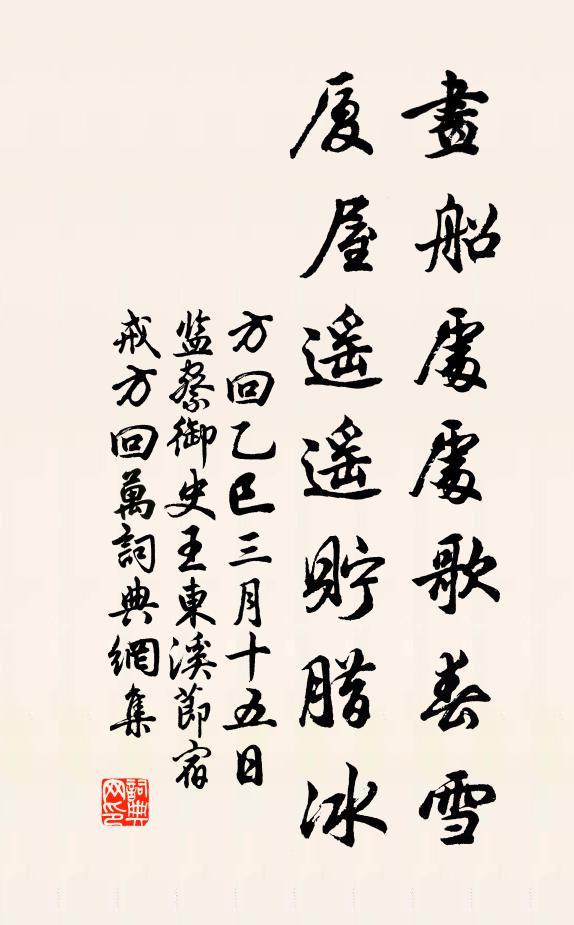 畫船處處歌春雪
厦屋遥遥貯腊冰
方回乙巳三月十五日
监察御史王東溪節宿
戒方回萬詞典網集
詞典网印